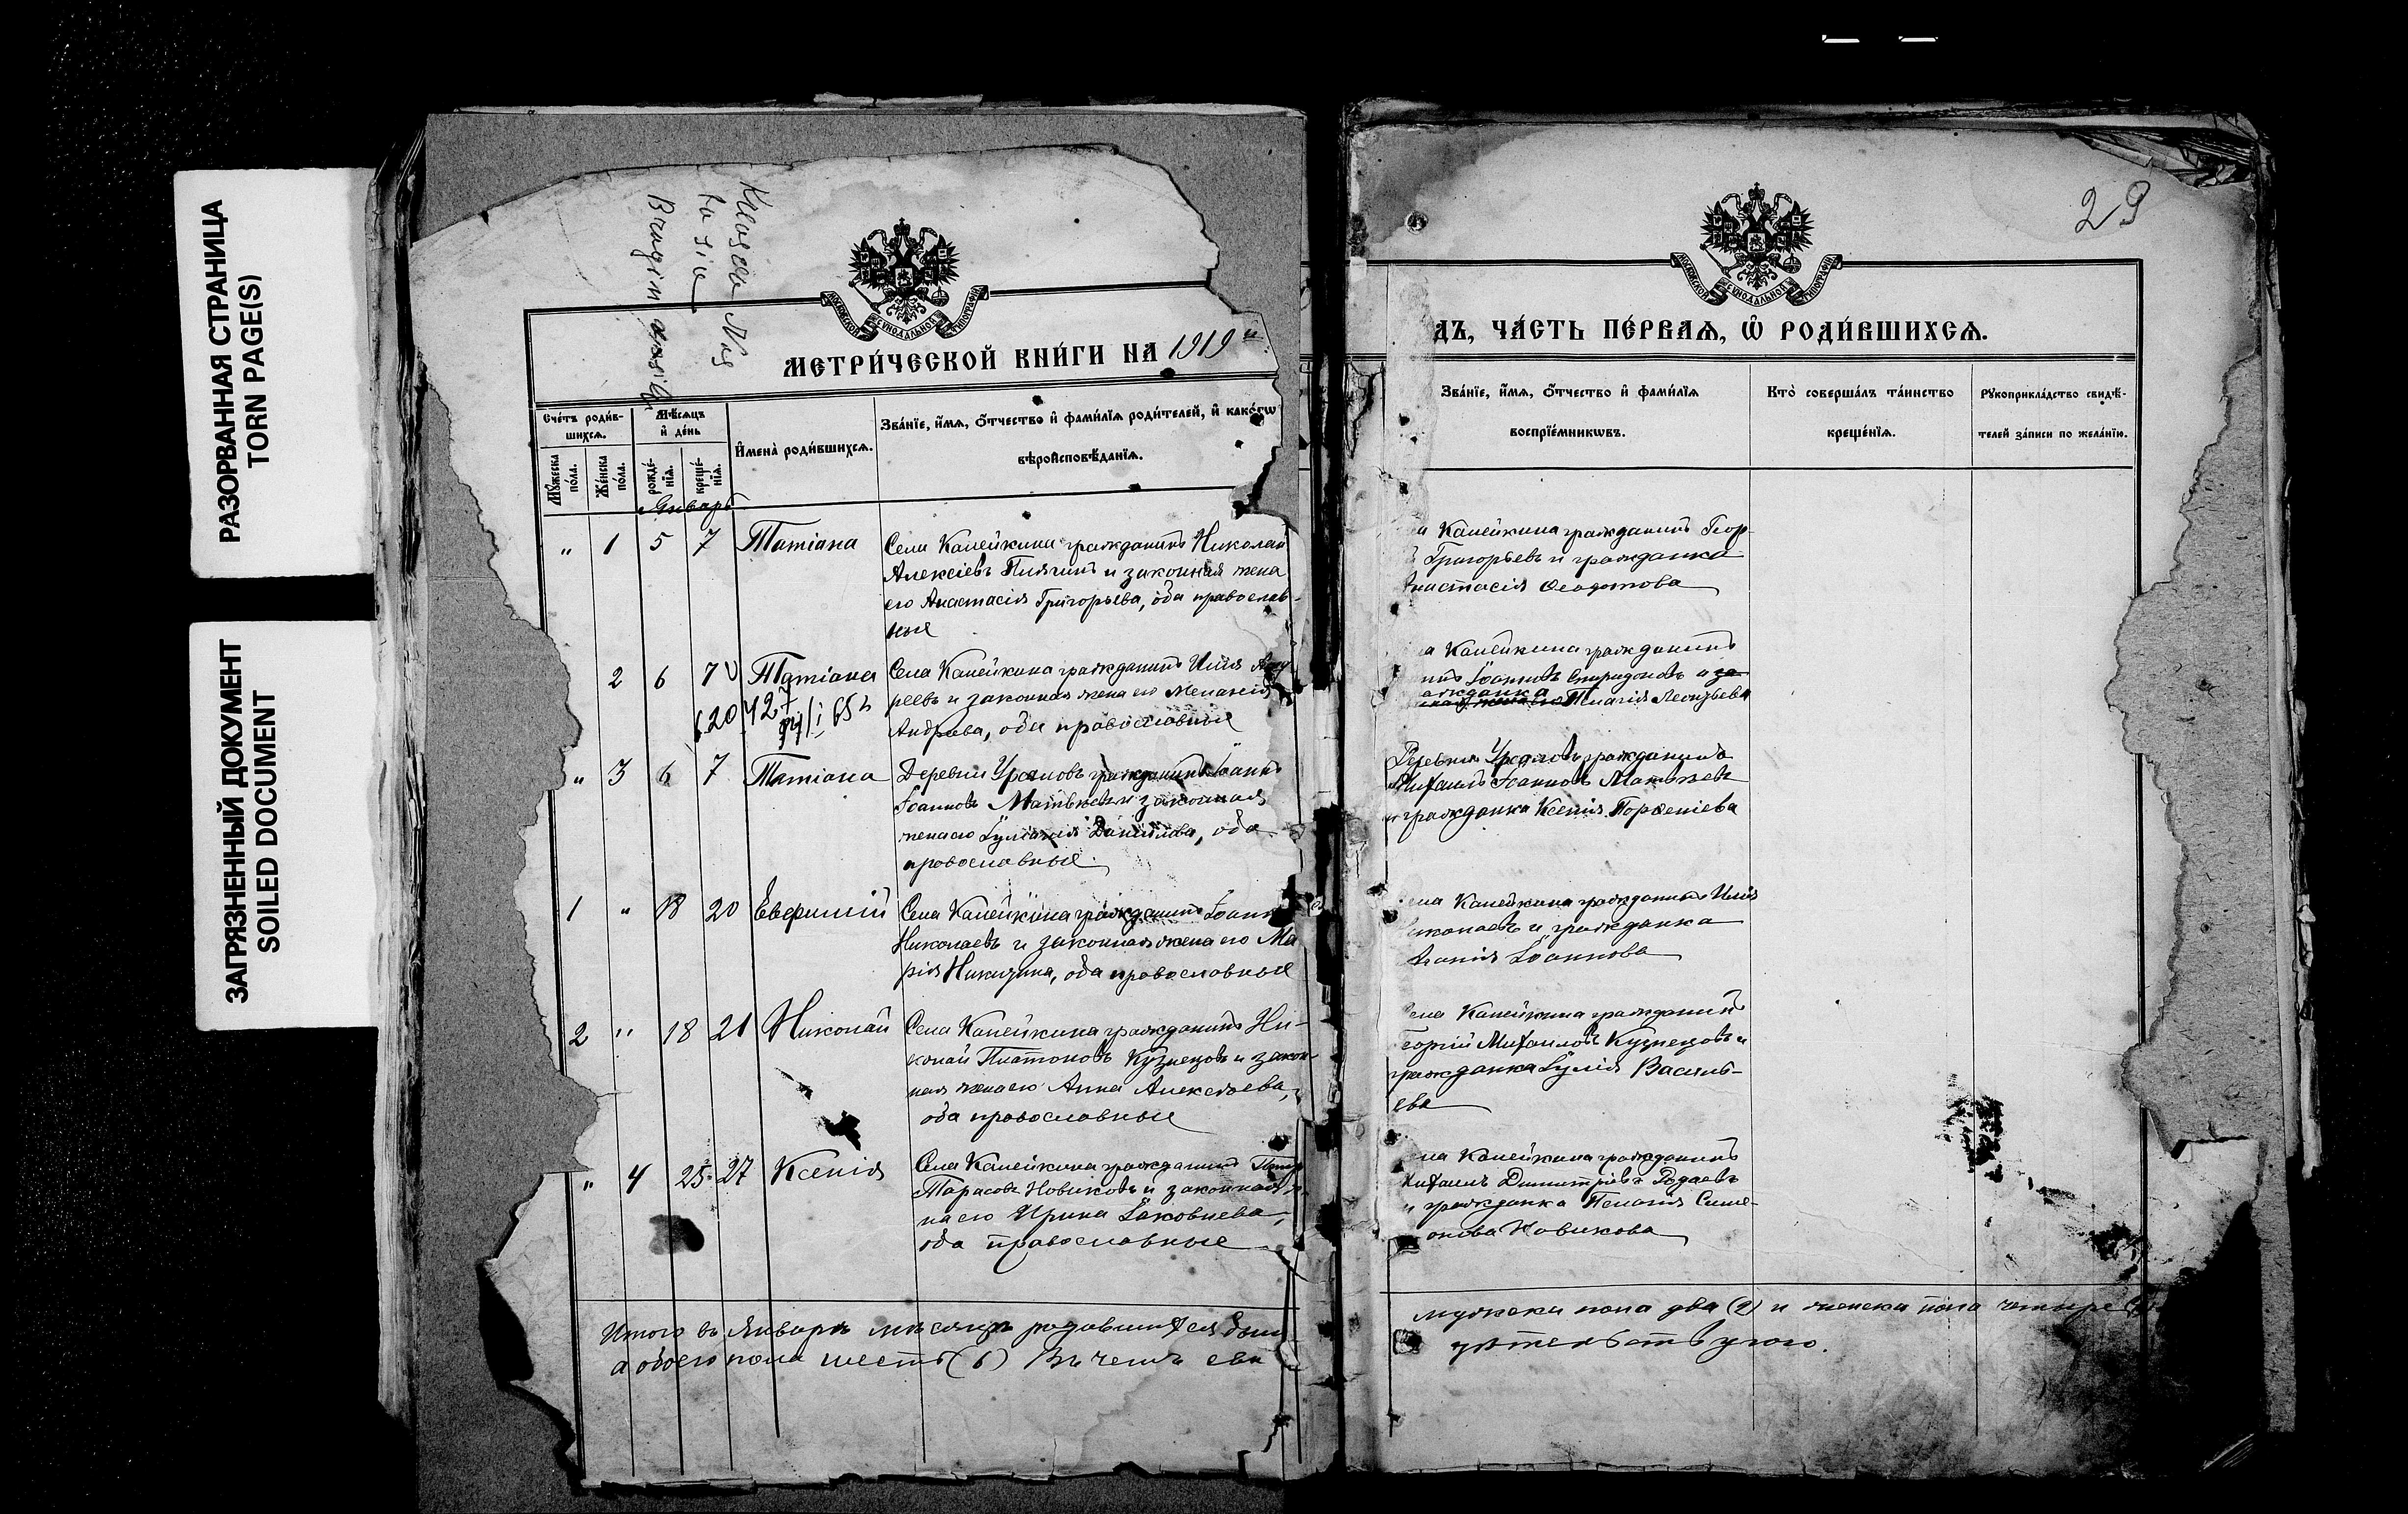 РАЗОРВАННАЯ СТРАНИЦА
TORN PAGE(S)
ЗАГРЯЗНЕННЫЙ ДОКУМЕНТ
SOILED DOCUMENT
МЕТРИ́ЧЕСКОЙ КНИ́ГИ НА 1919
Сче́тъ роди́в-
шихсѧ.
Мѣ́сѧцъ
и҆ де́нь
И҆мена̀ роди́вшихсѧ.
Зва́нїе, и҆́мѧ, ѻ҆́тчество и҆ фами́лїѧ роди́телей, и҆ како́гѡ
вѣроисповѣ́данїѧ.
Мꙋ́жеска
по́ла.
Же́нска
по́ла.
рожде́-
нїѧ.
креще́-
нїѧ.
Январь
" 1 5 7 Татіана
Села Капейкина гражданинъ Николай
Алексіевъ и законная жена
его Анастасія Григорьева, оба православ-
ные
2 6 7 Татіана
Села Капейкина гражданинъ Илія
реевъ и законная жена его Меланія
Андреева, оба православные
" 3 6 7 Татіана
Деревни гражданинъ Іоаннъ
Іоанновъ и законная
жена его Іуліанія Данилова, оба
православные.
1 " 18 20 Евфимій
Села Капейкина гражданинъ Іоаннъ
Николаевъ и законная жена его Ма
рія Никитина, оба православные
2 " 18 21 Николай
Села Капейкина гражданинъ Ни-
колай Платоновъ Кузнецовъ и закон-
ная жена его Анна Алексѣева,
оба православные
" 4 25 27 Ксенія
Села Капейкина гражданинъ Петръ
Тарасовъ Новиковъ и законная
на его Ирина Іаковлева,
оба православные
Итого въ Январѣ мѣсяцѣ родившихся было
обоего пола шесть (6) Въ чемъ сви
29
ДЪ, ЧА́СТЬ ПЕ́РВАѦ, Ѡ҆ РОДИ́ВШИХСѦ.
Зва́нїе, и҆́мѧ, ѻ҆́тчество и҆ фами́лїѧ
воспрїе́мникѡвъ.
Кто̀ соверша́лъ та́инство
креще́нїѧ.
Рꙋкоприкла́дство свидѣ́-
телей за́писи по жела́нїю.
Капейкина гражданинъ Геор-
Григорьевъ и гражданка
Анастасія Ѳеодотова
Капейкина гражданинъ
Іоанновъ Спиридоновъ и за-
гражданка
Пелагія Леонтьева
Деревни гражданинъ
Михаилъ Іоанновъ
и гражданка Ксенія Порфенiева
Села Капейкина гражданинъ Илія
Николаевъ и гражданка
Іоаннова
Села Капейкина гражданинъ
Георгій Михаиловъ Кузнецовъ и
гражданка Іулія Василь-
ева
Села Капейкина гражданинъ
Михаилъ Димитріевъ Родаевъ
и гражданка Пелагія Симе-
онова Новикова
мужеска пола два (2) и женска пола четыре
дѣтельствуюю.